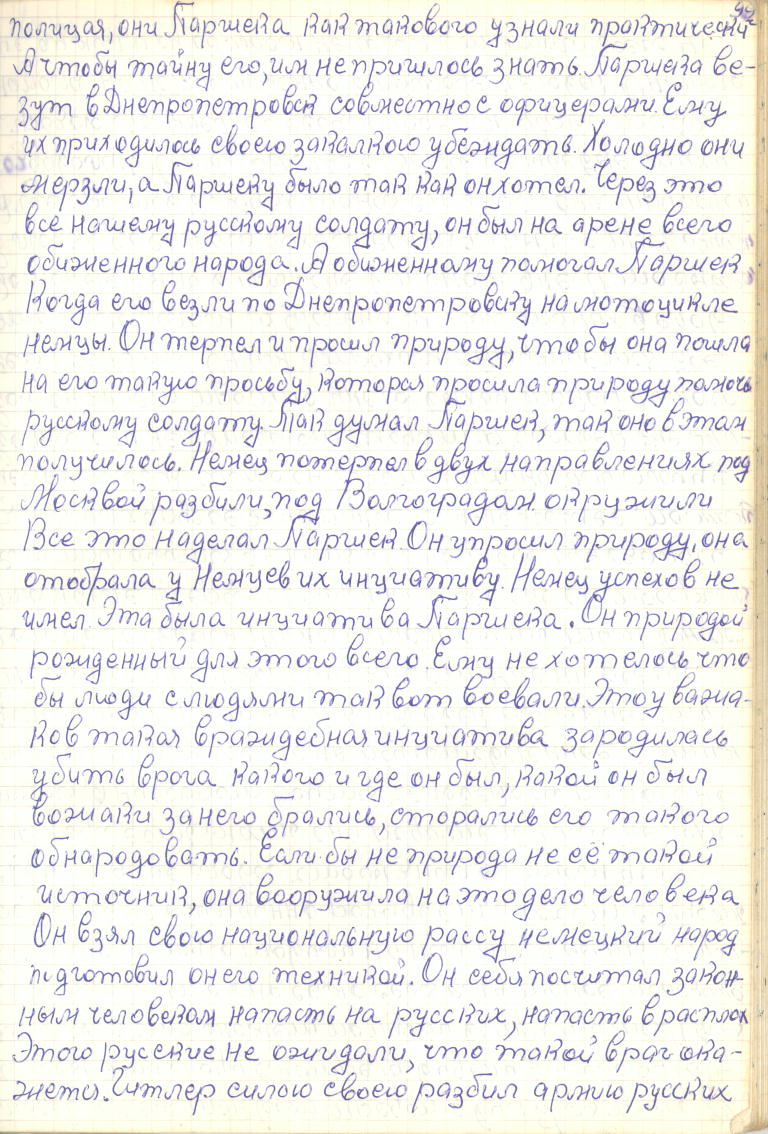 полицая, они Паршека как такового узнали практически
А чтобы тайну его, им не пришлось знать. Паршека ве-
зут в Днепропетровск совместно с офицерами. Ему
их приходилось своею закалкою убеждать. Холодно они
мерзли, а Паршеку было так как он хотел. Через это
все нашему русскому солдату, он был на арене всего
обиженного народа. А обиженному помогал Паршек
Когда его везли по Днепропетровску на мотоцикле
немцы. Он терпел и просил природу, чтобы она пошла
на его такую просьбу, которая просила природу помочь
русскому солдату. Так думал Паршек, так оно в этом
получилось. Немец потерпел в двух направлениях под
Москвой разбили, под Волгоградом окружили
Все это наделал Паршек. Он упросил природу, она
отобрала у Немцев их инциативу. Немец успехов не
имел. Эта была инициатива Паршека. Он природой
рожденный для этого всего. Ему не хотелось что
бы люди с людями так вот воевали. Это у важа-
ков такая враждебная инциатива зародилась
убить врага какого и где он был, какой он был
вожаки за него брались, сторались его такого
обнародовать. Если бы не природа не её такой
источник, она вооружила на это дело человека
Он взял свою национальную рассу немецкий народ
подготовил он его техникой. Он себя посчитал закон-
ным человеком напасть на русских, напасть врасплох
Этого русские не ожидали, что такой враг ока-
жется. Гитлер силою своею разбил армию русских